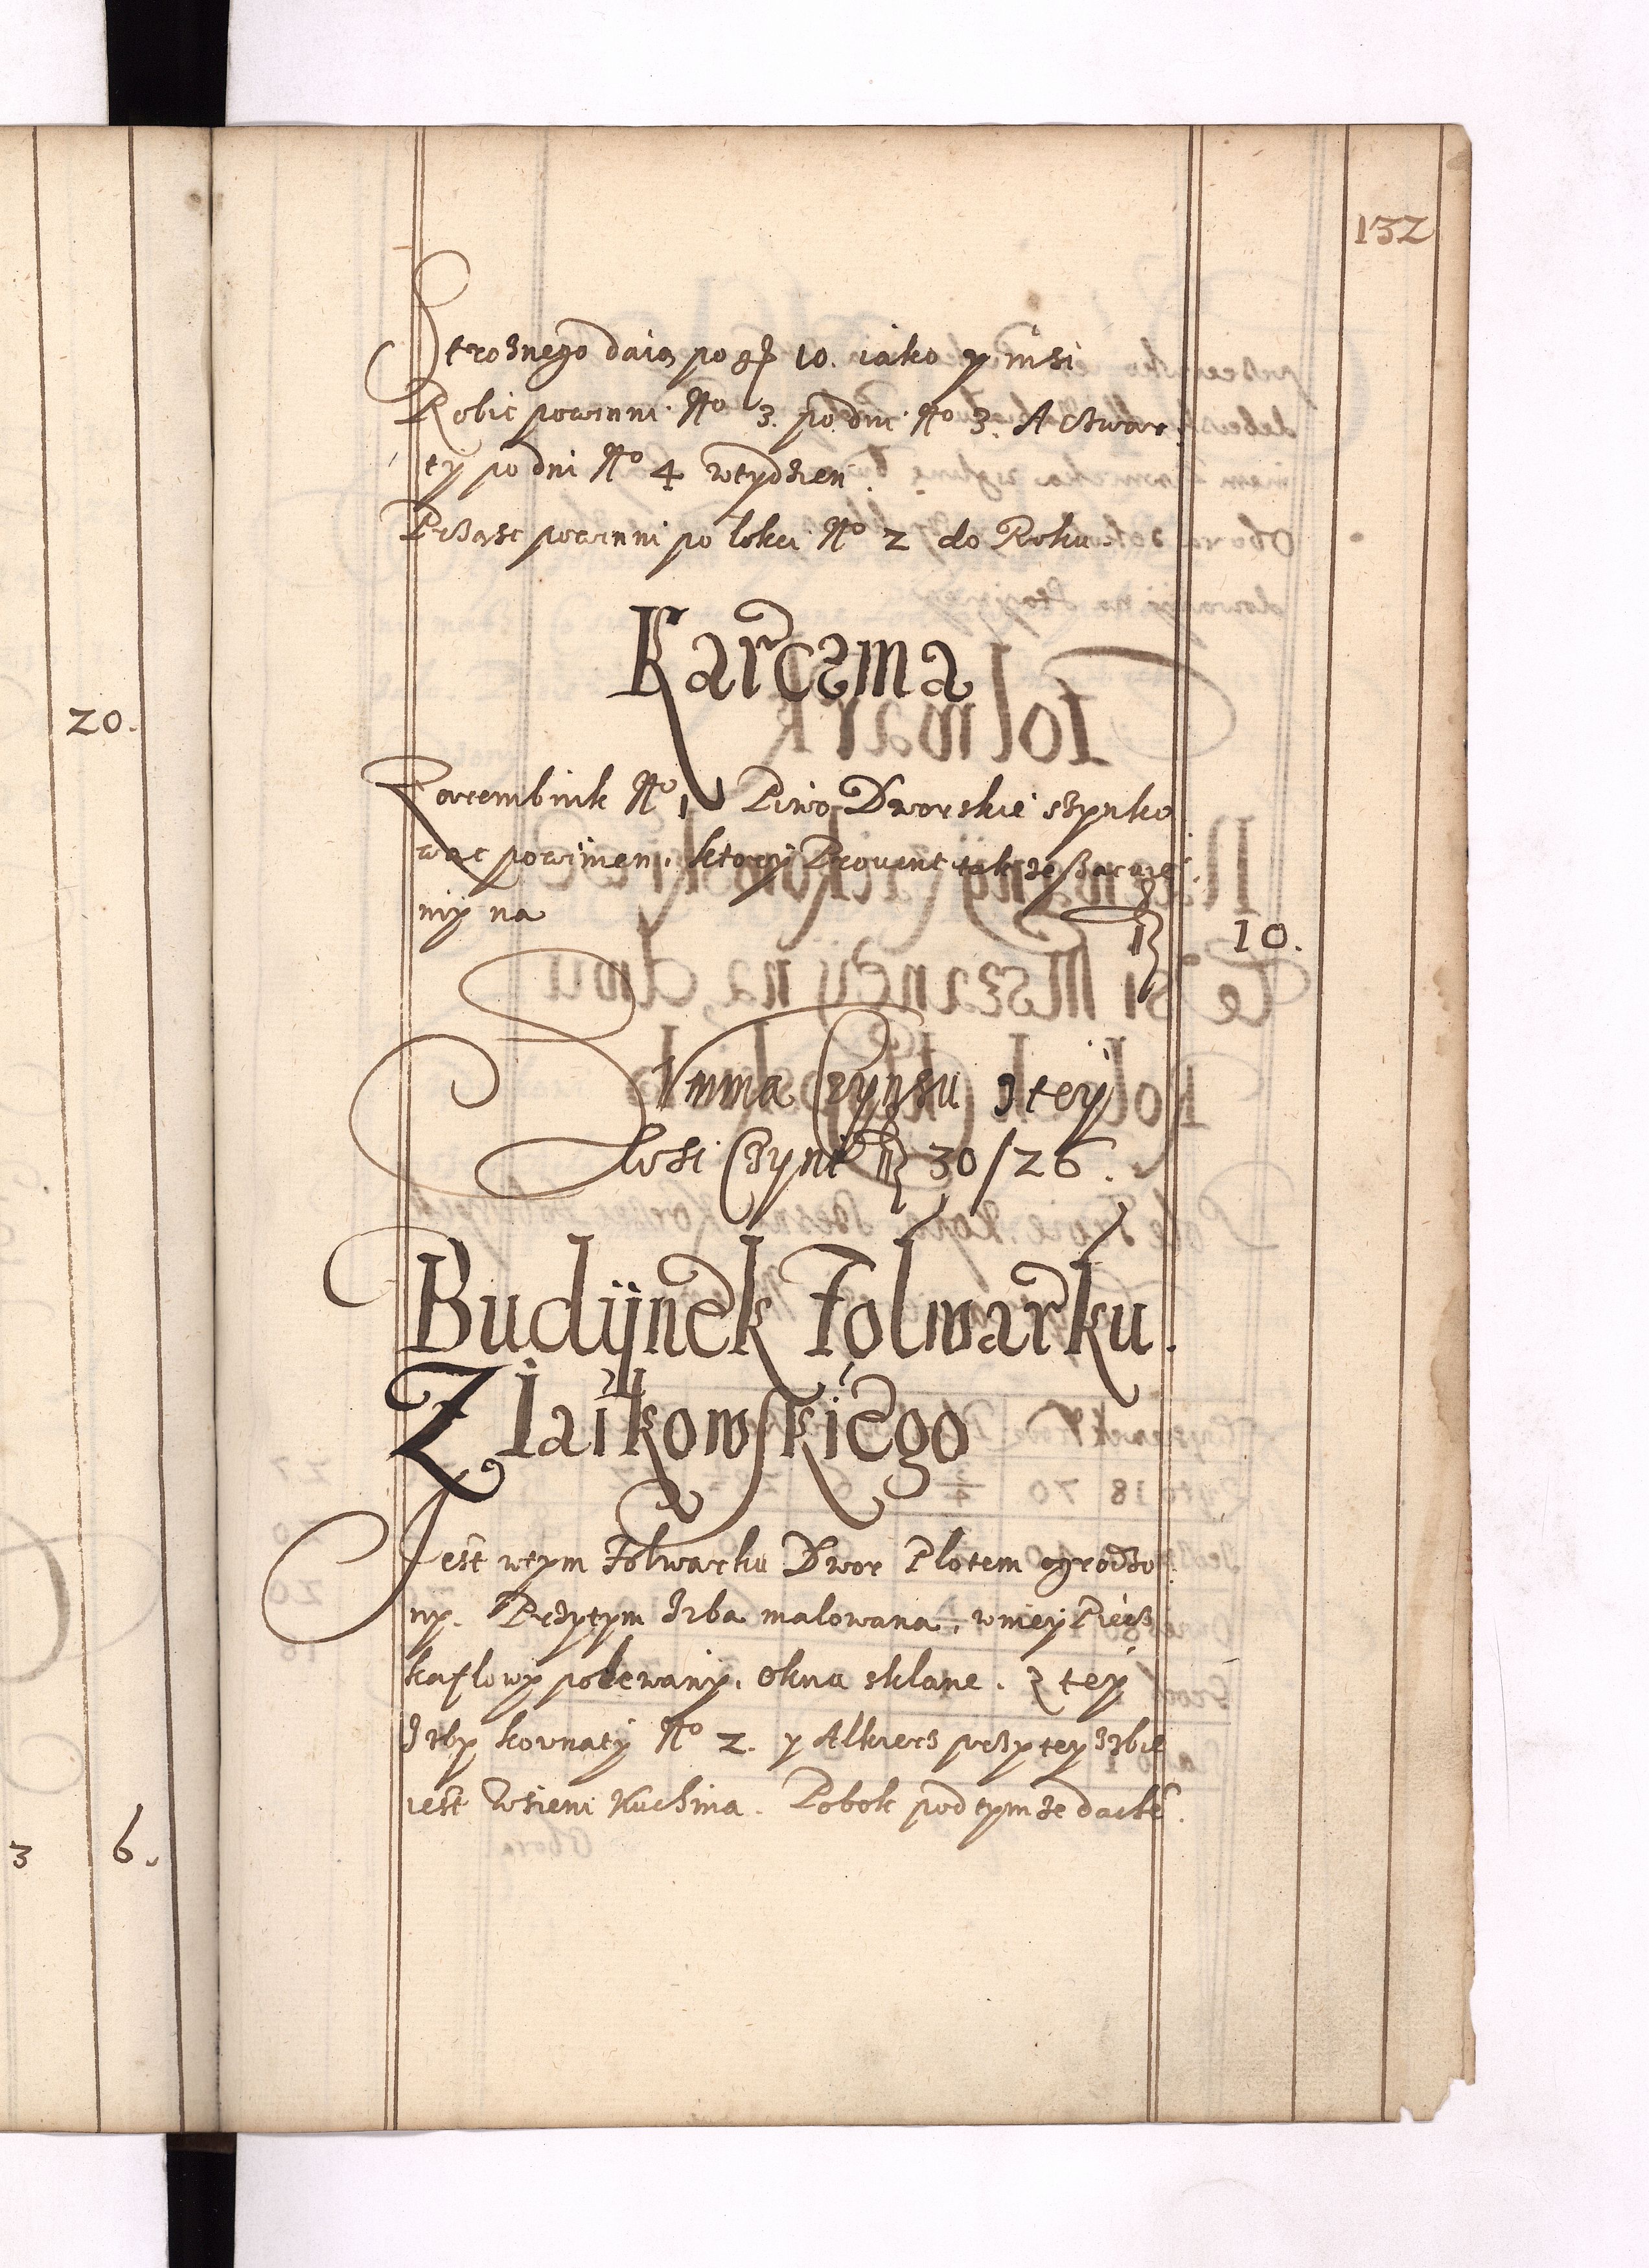 132
Strożnego daią po gr 10. iako y insi
Robic powinni No 3. po dni No 3. A czwar
ty po dni No 4 w tydzien.
Prząsc powinni po łokci No 2 do Roku.
Karczma
Zarembnik No 1 Piwo Dworskie szynko
wac powinien. ktory Prouent także szacuie
my na fl 10.
Summa Czynszu z tey
Wsi Czyni fl 30/26.
Budÿnek Folwarku
Zlaikowskiego
Jest w tym Folwarku Dwor Płotem ogrodzo
ny. Przytym Izba malowana, w niey Piecz
kaflowy polewany, okna sklane. z tey
Izby komnaty No 2. y Alkierz przy tey Izbie
iest w sieni Kuchnia. Pobok pod tymże dache
20.
3 6.